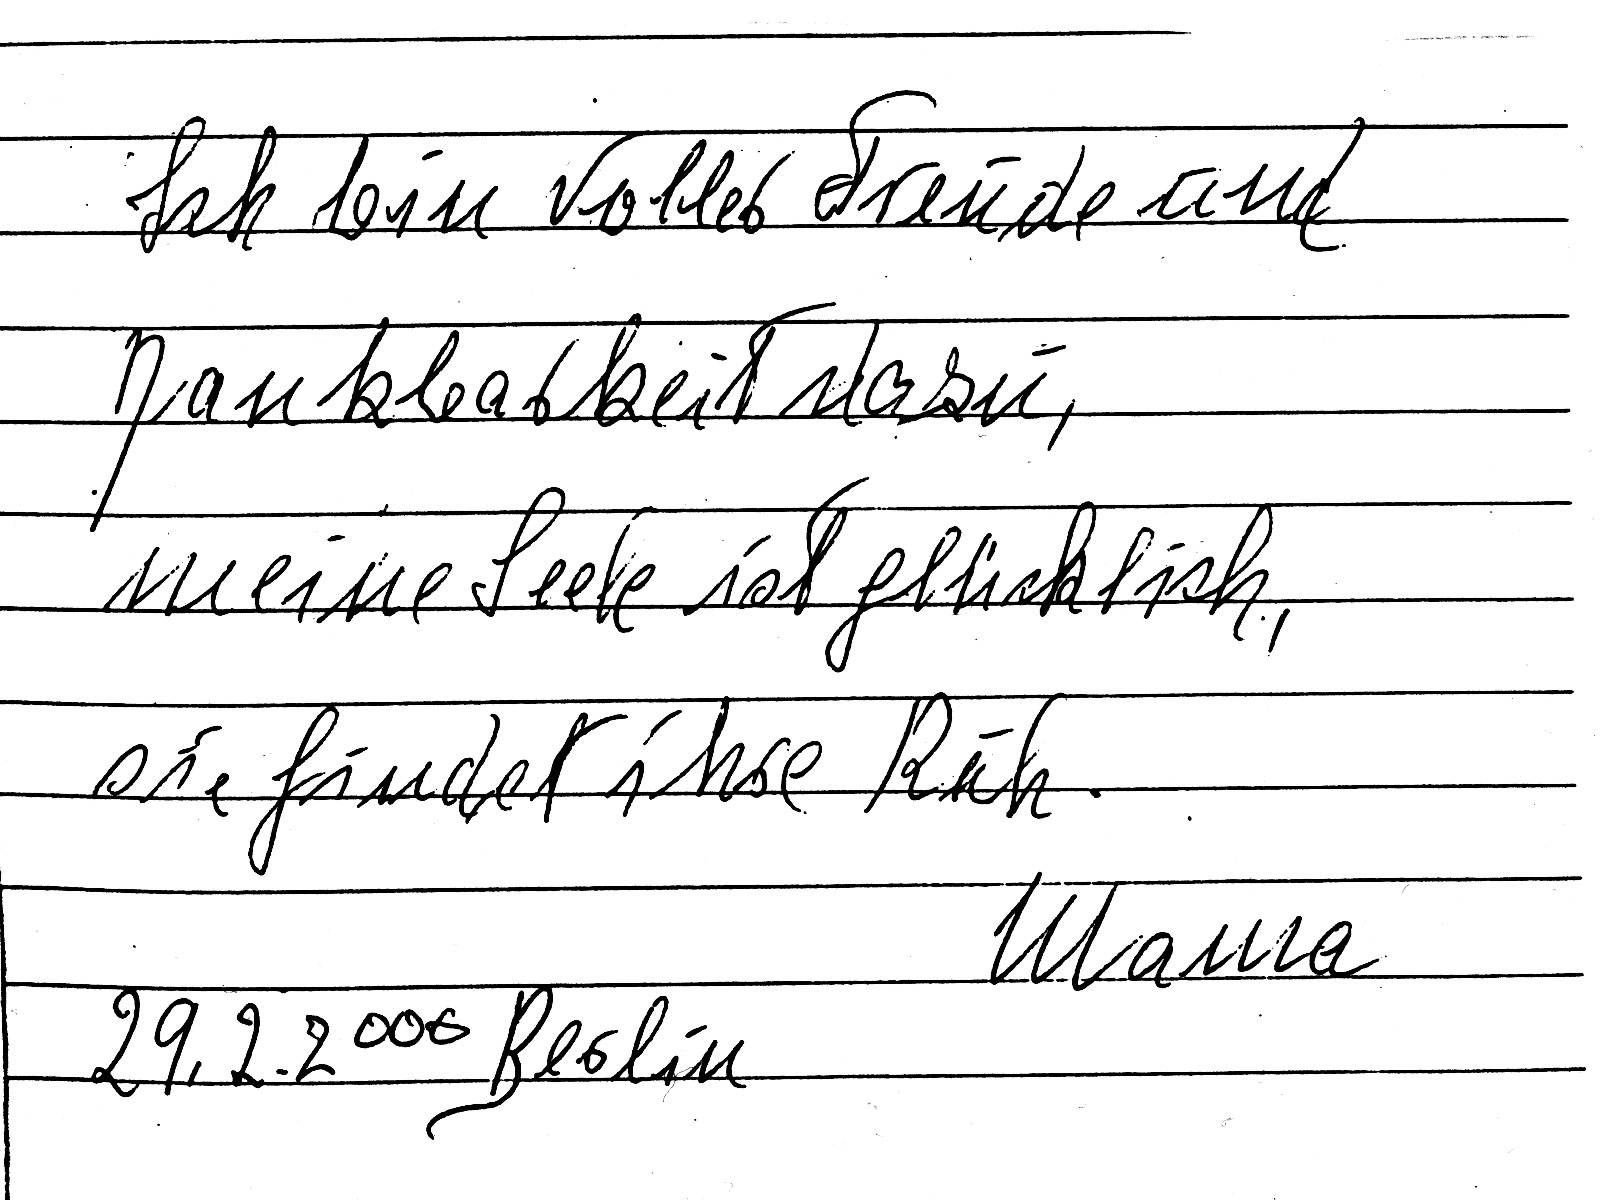 Ich bin voller Freude und
Dankbarkeit dazu,
meine Seele ist glücklich,
sie findet ihre Ruh.
Mama
29.2.2000 Berlin